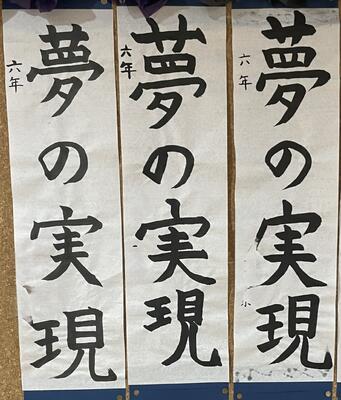 夢の実現
六年
夢の実現
六年
夢の実現
六年
小